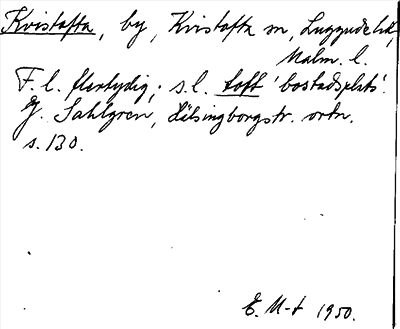 Kvistofta, by, Kvistofta sn, Luggude hd,
Malm. l.
F. l. flertydig; s. l. toft 'bostadsplats'.
Jf. Sahlgren, Hälsingborgstr. ortn.
s. 130.
E. M-t 1950.